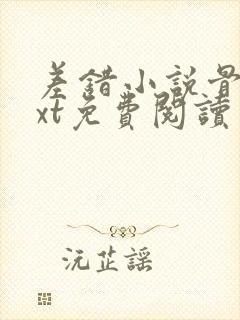 差錯小說最
xt免費閱讀
沅芷謠